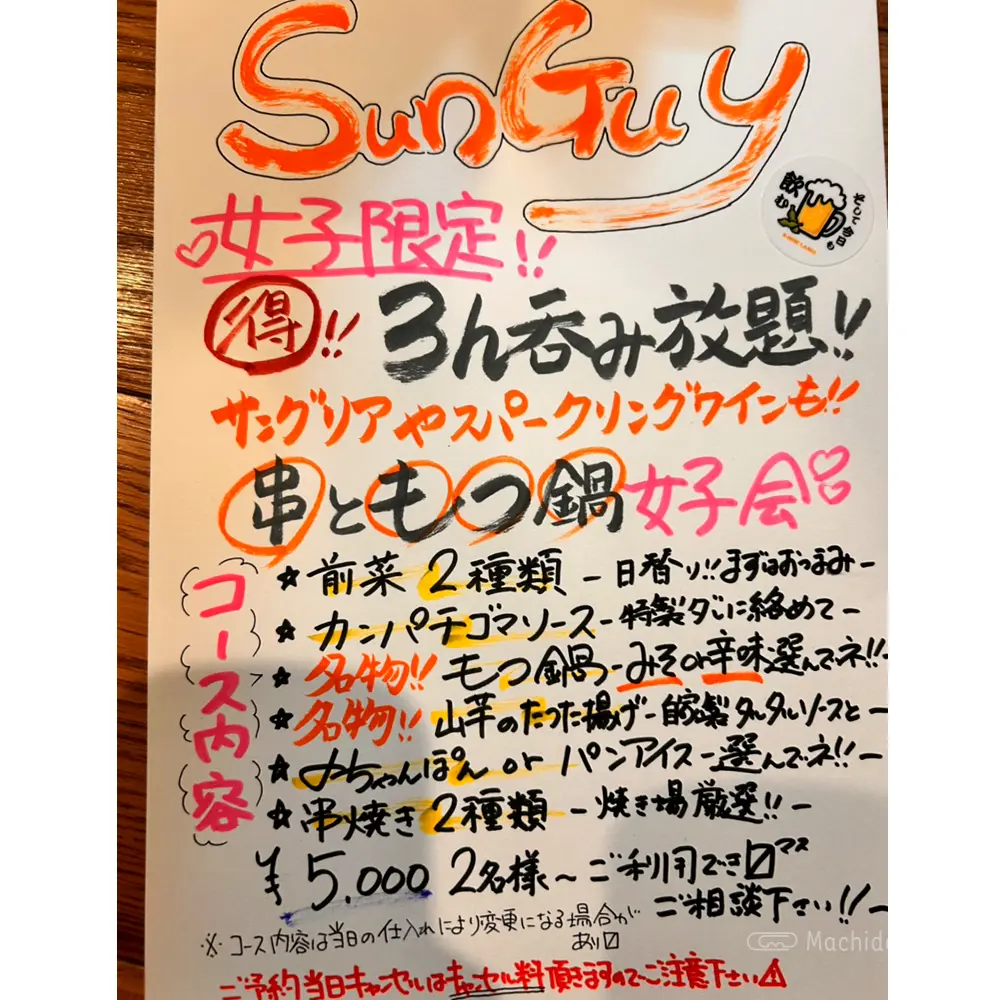 SunGuy
飲む
女子限定!!
得!! 3h呑み放題!!
サングリアやスパークリングワインも!!
串ともつ鍋女子会
コース内容
★前菜2種類 -日替り!!まずはおつまみ-
★カンパチゴマソース-特製ダレに絡めて-
★名物!! もつ鍋-みそor辛味選んでネ!!-
★名物!! 山芋のたつた揚げ-自家製タルタルソースと-
★〆ちゃんぽん or パンアイス-選んでネ!!-
★串焼き2種類 -焼き場厳選!!-
¥5,000 2名様〜ご利用でき〼マス
ご相談下さい!!-
※コース内容は当日の仕入れにより変更になる場合が
あり〼
ご予約当日キャンセルはキャンセル料頂きますのでご注意下さい⚠
Machida